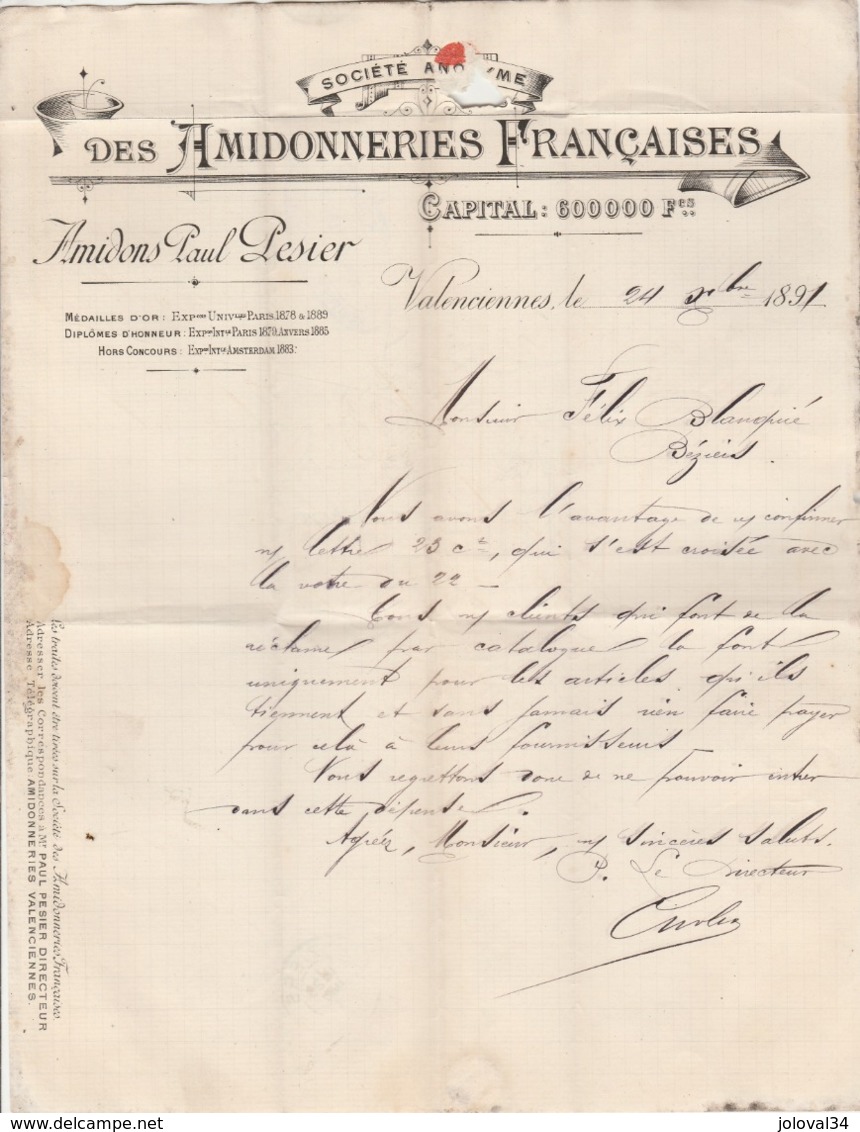 SOCIÉTÉ ANONYME
DES AMIDONNERIES FRANÇAISES
CAPITAL: 600000 Fcs
Amidons Paul Pesier
MÉDAILLES D'OR: EXPons UNIVles PARIS.1878 & 1889
DIPLÔMES D'HONNEUR: EXPon INTle PARIS 1879. ANVERS 1885
HORS CONCOURS: EXPon INTle AMSTERDAM 1883.
Valenciennes, le 24 Xbre 1891
Monsieur Félix Blanquié
Béziers.
Nous avons l'avantage de vs confirmer
ns lettre 23 ct, qui s'est croisée avec
la votre du 22 —
Tous ns clients qui font de la
réclame par catalogue la font
uniquement pour les articles qu'ils
tiennent et sans jamais rien faire payer
pour celà à leurs fournisseurs
Nous regrettons donc de ne pouvoir entrer
dans cette dépense.
Agréez, Monsieur, ns sincères saluts.
P. Le Directeur
Les traites doivent être tirées sur la Société des Amidonneries Françaises.
Adresser les Correspondances à Mr PAUL PESIER DIRECTEUR
Adresse Télégraphique AMIDONNERIES VALENCIENNES.
delcampe.net
joloval34